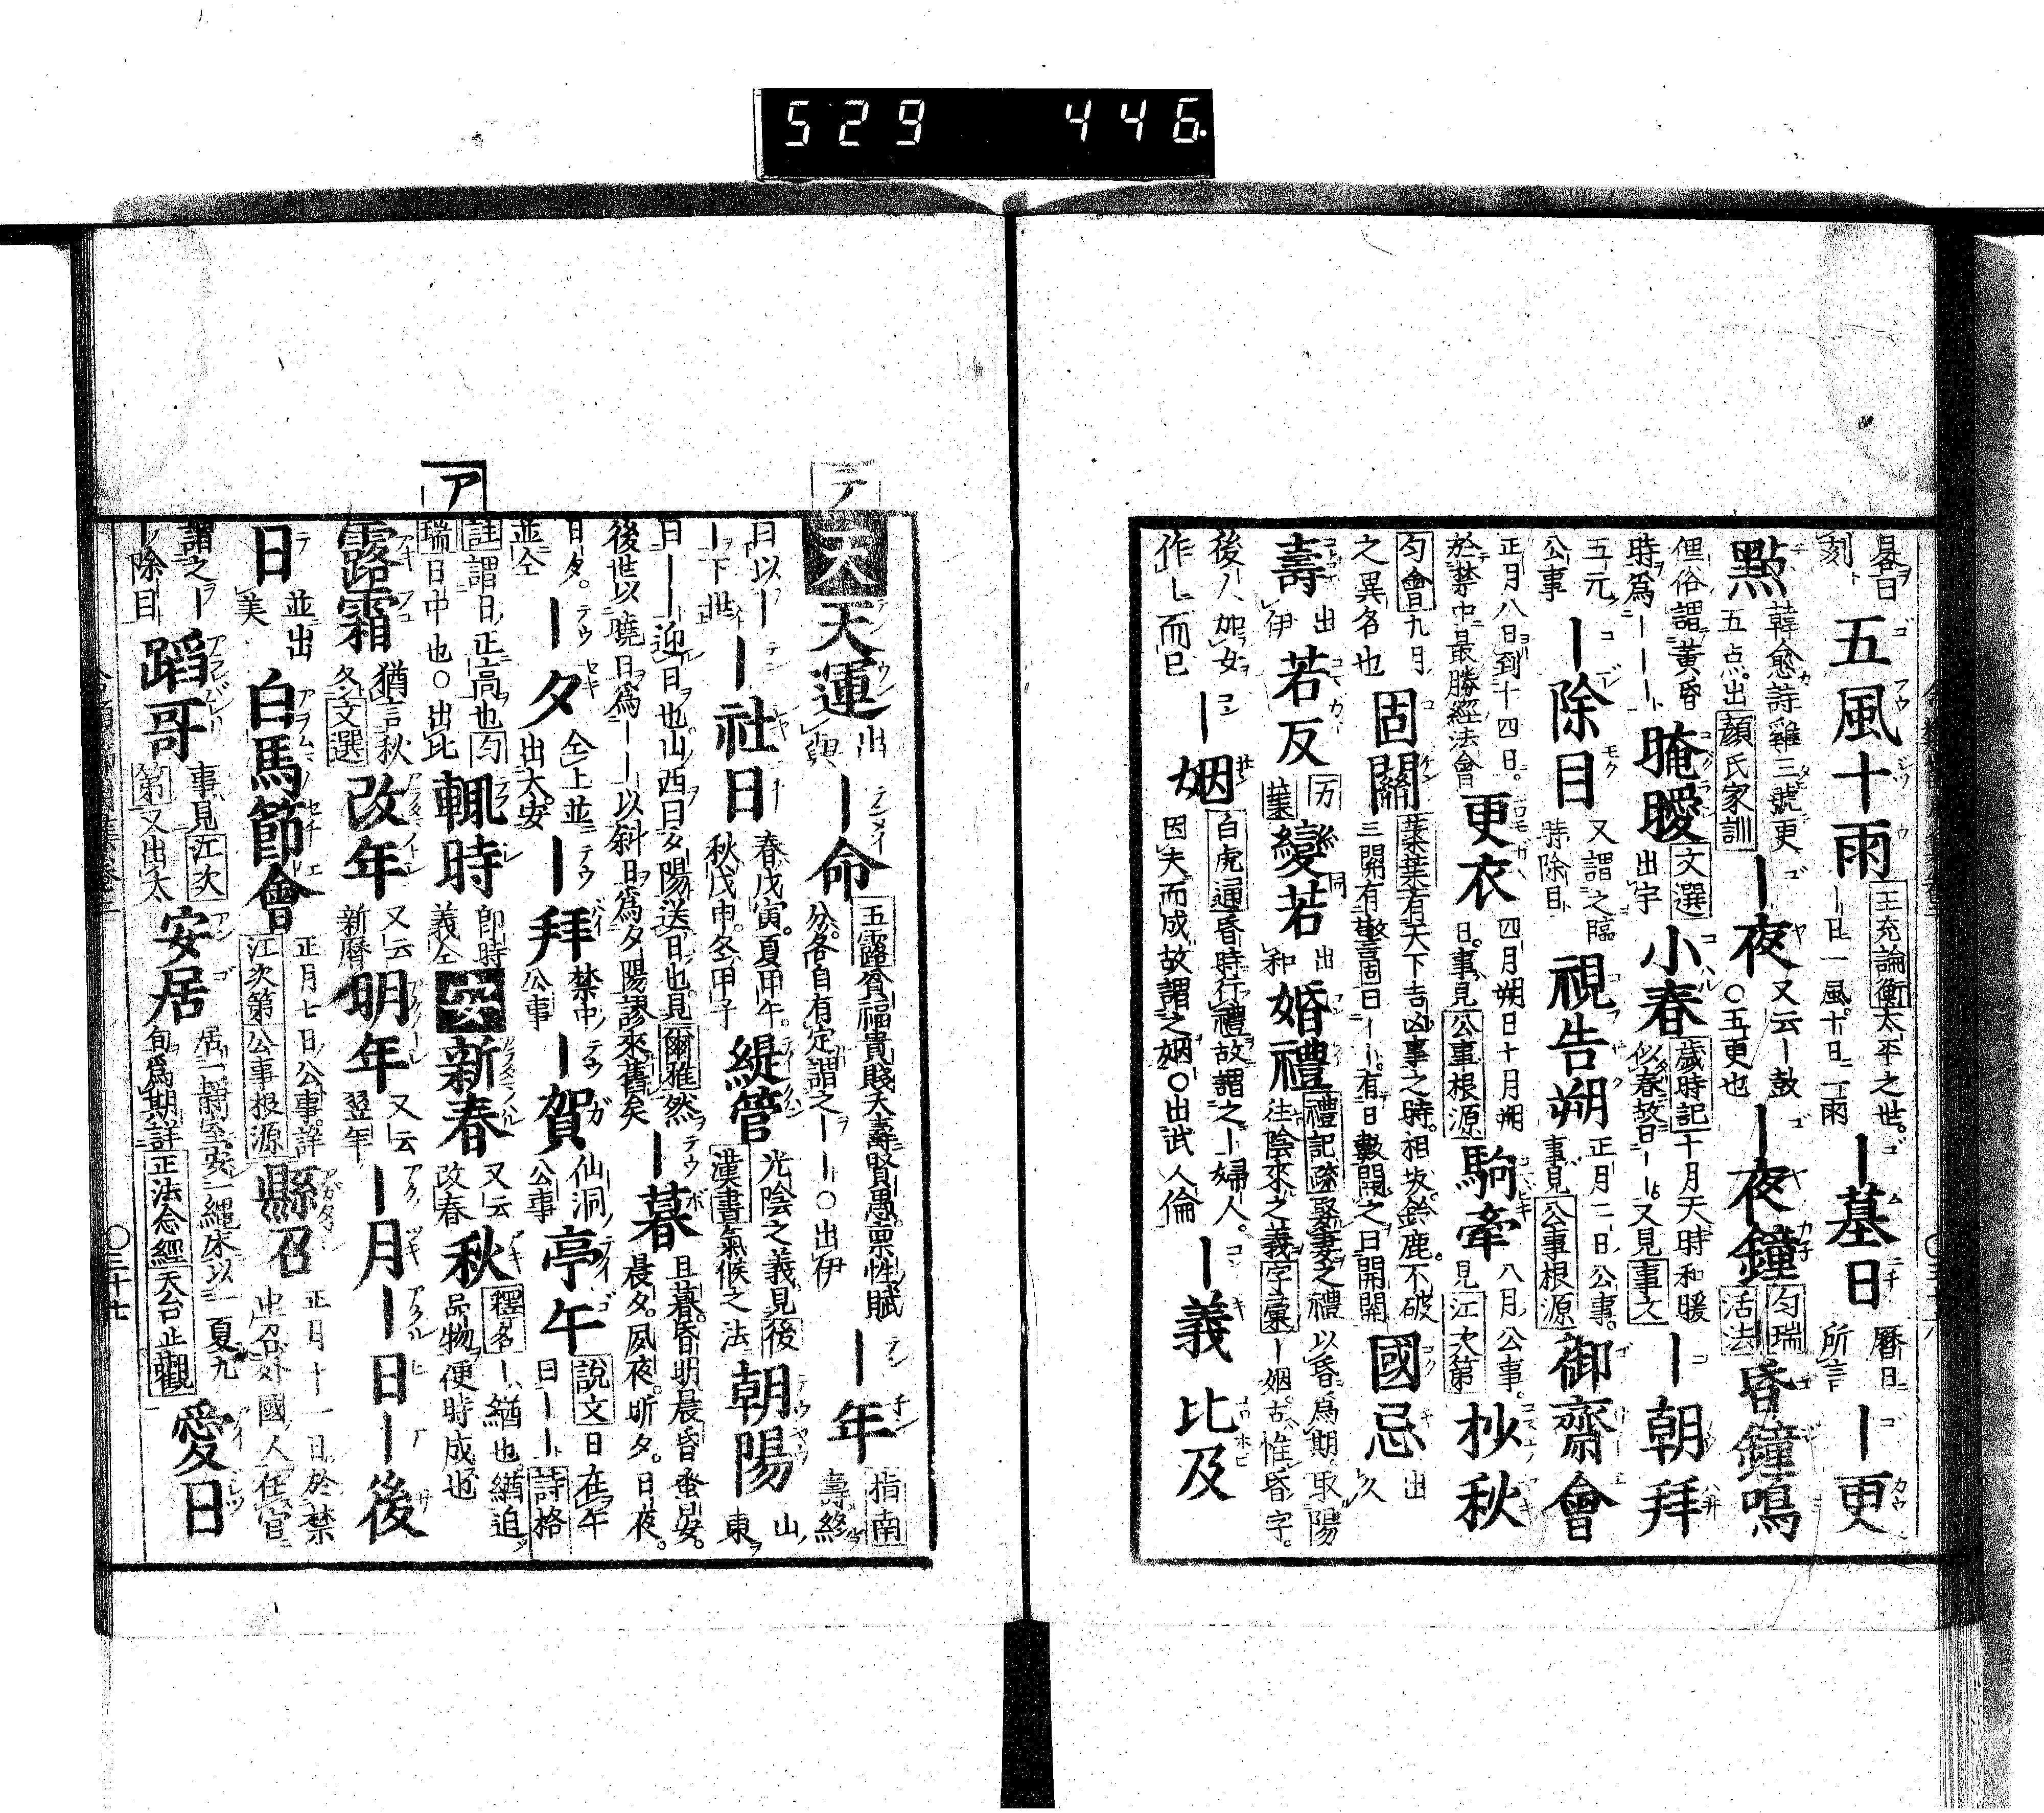 529 446
晷日刻 五風十雨 王充論衡太平之世。五日一風。十日一雨 ー墓日 曆日所言 ー更
點 韓愈詩雞三號更五点。出顏氏家訓 ー夜 又云ー鼓〇五更也 ー夜鐘 匀瑞活法 昏鐘鳴
俚俗謂黃昏時爲ーーー 晻曖 文選出宇 小春 歲時記十月天時和暖似春故曰ーー又見事文 ー朝拜
五元公事 ー除目 又謂之臨時除目 視告朔 正月二日公事。事見公事根源 御齋會
正月八日到十四日。於禁中最勝經法會 更衣 四月朔日十月朔日。事見公事根源 駒牽 八月公事。見江次第 杪秋
匀會九月之異名也 固關 葉葉有天下吉凶事之時。相坂鈴鹿不破三關有警固曰ーー。有日數開之曰開關 國忌 出久
壽 出伊 若反 万葉 變若 同出和 婚禮 禮記疏娶妻之禮以昏爲期。取陽往陰來之義字彙ー姻。古惟昏字。
後人加女作ー而已 ー姻 白虎通昏時行禮故謂之ー婦人因夫而成故謂之姻〇出武人倫 ー義 比及
テ
天 天運 出與 ー命 五露貧福貴賤夭壽賢愚禀性賦分。各自有定謂之ーー〇出伊 ー年 指南壽終
曰以ーー下世 ー社日 春戊寅。夏甲午。秋戊申。冬甲子 緹管 光陰之義見後漢書氣候之法 朝陽 山東
曰ーー迎日也。山西曰夕陽送日也。見爾雅然後世以曉日爲ーー以斜日爲夕陽謬來舊矣 ー暮 旦暮。昏明晨昏蚤晏。晨夕。夙夜。昕夕。日夜。
日夕。並仝 ー夕 仝上並出太安 ー拜 禁中公事 ー賀 仙洞公事 亭午 說文日在午曰ーー詩格
註謂日正高也匀瑞日中也〇出比 輒時 卽時義仝 安 新春 又云改春 秋 釋名ー緧也。緧迫品物便時成也
ア
露霜 猶言秋冬文選 改年 又云新曆 明年 又云翌年 ー月 ー日 ー後
日 並出美 白馬節會 正月七日公事。詳江次第公事根源 縣召 正月十一日。於禁出召外國人任官
謂之ー除日 蹈哥 事見江次第又出太 安居 居一靜室安一繩床以一夏九旬爲期詳正法念經天台止觀 愛日
〇三十七